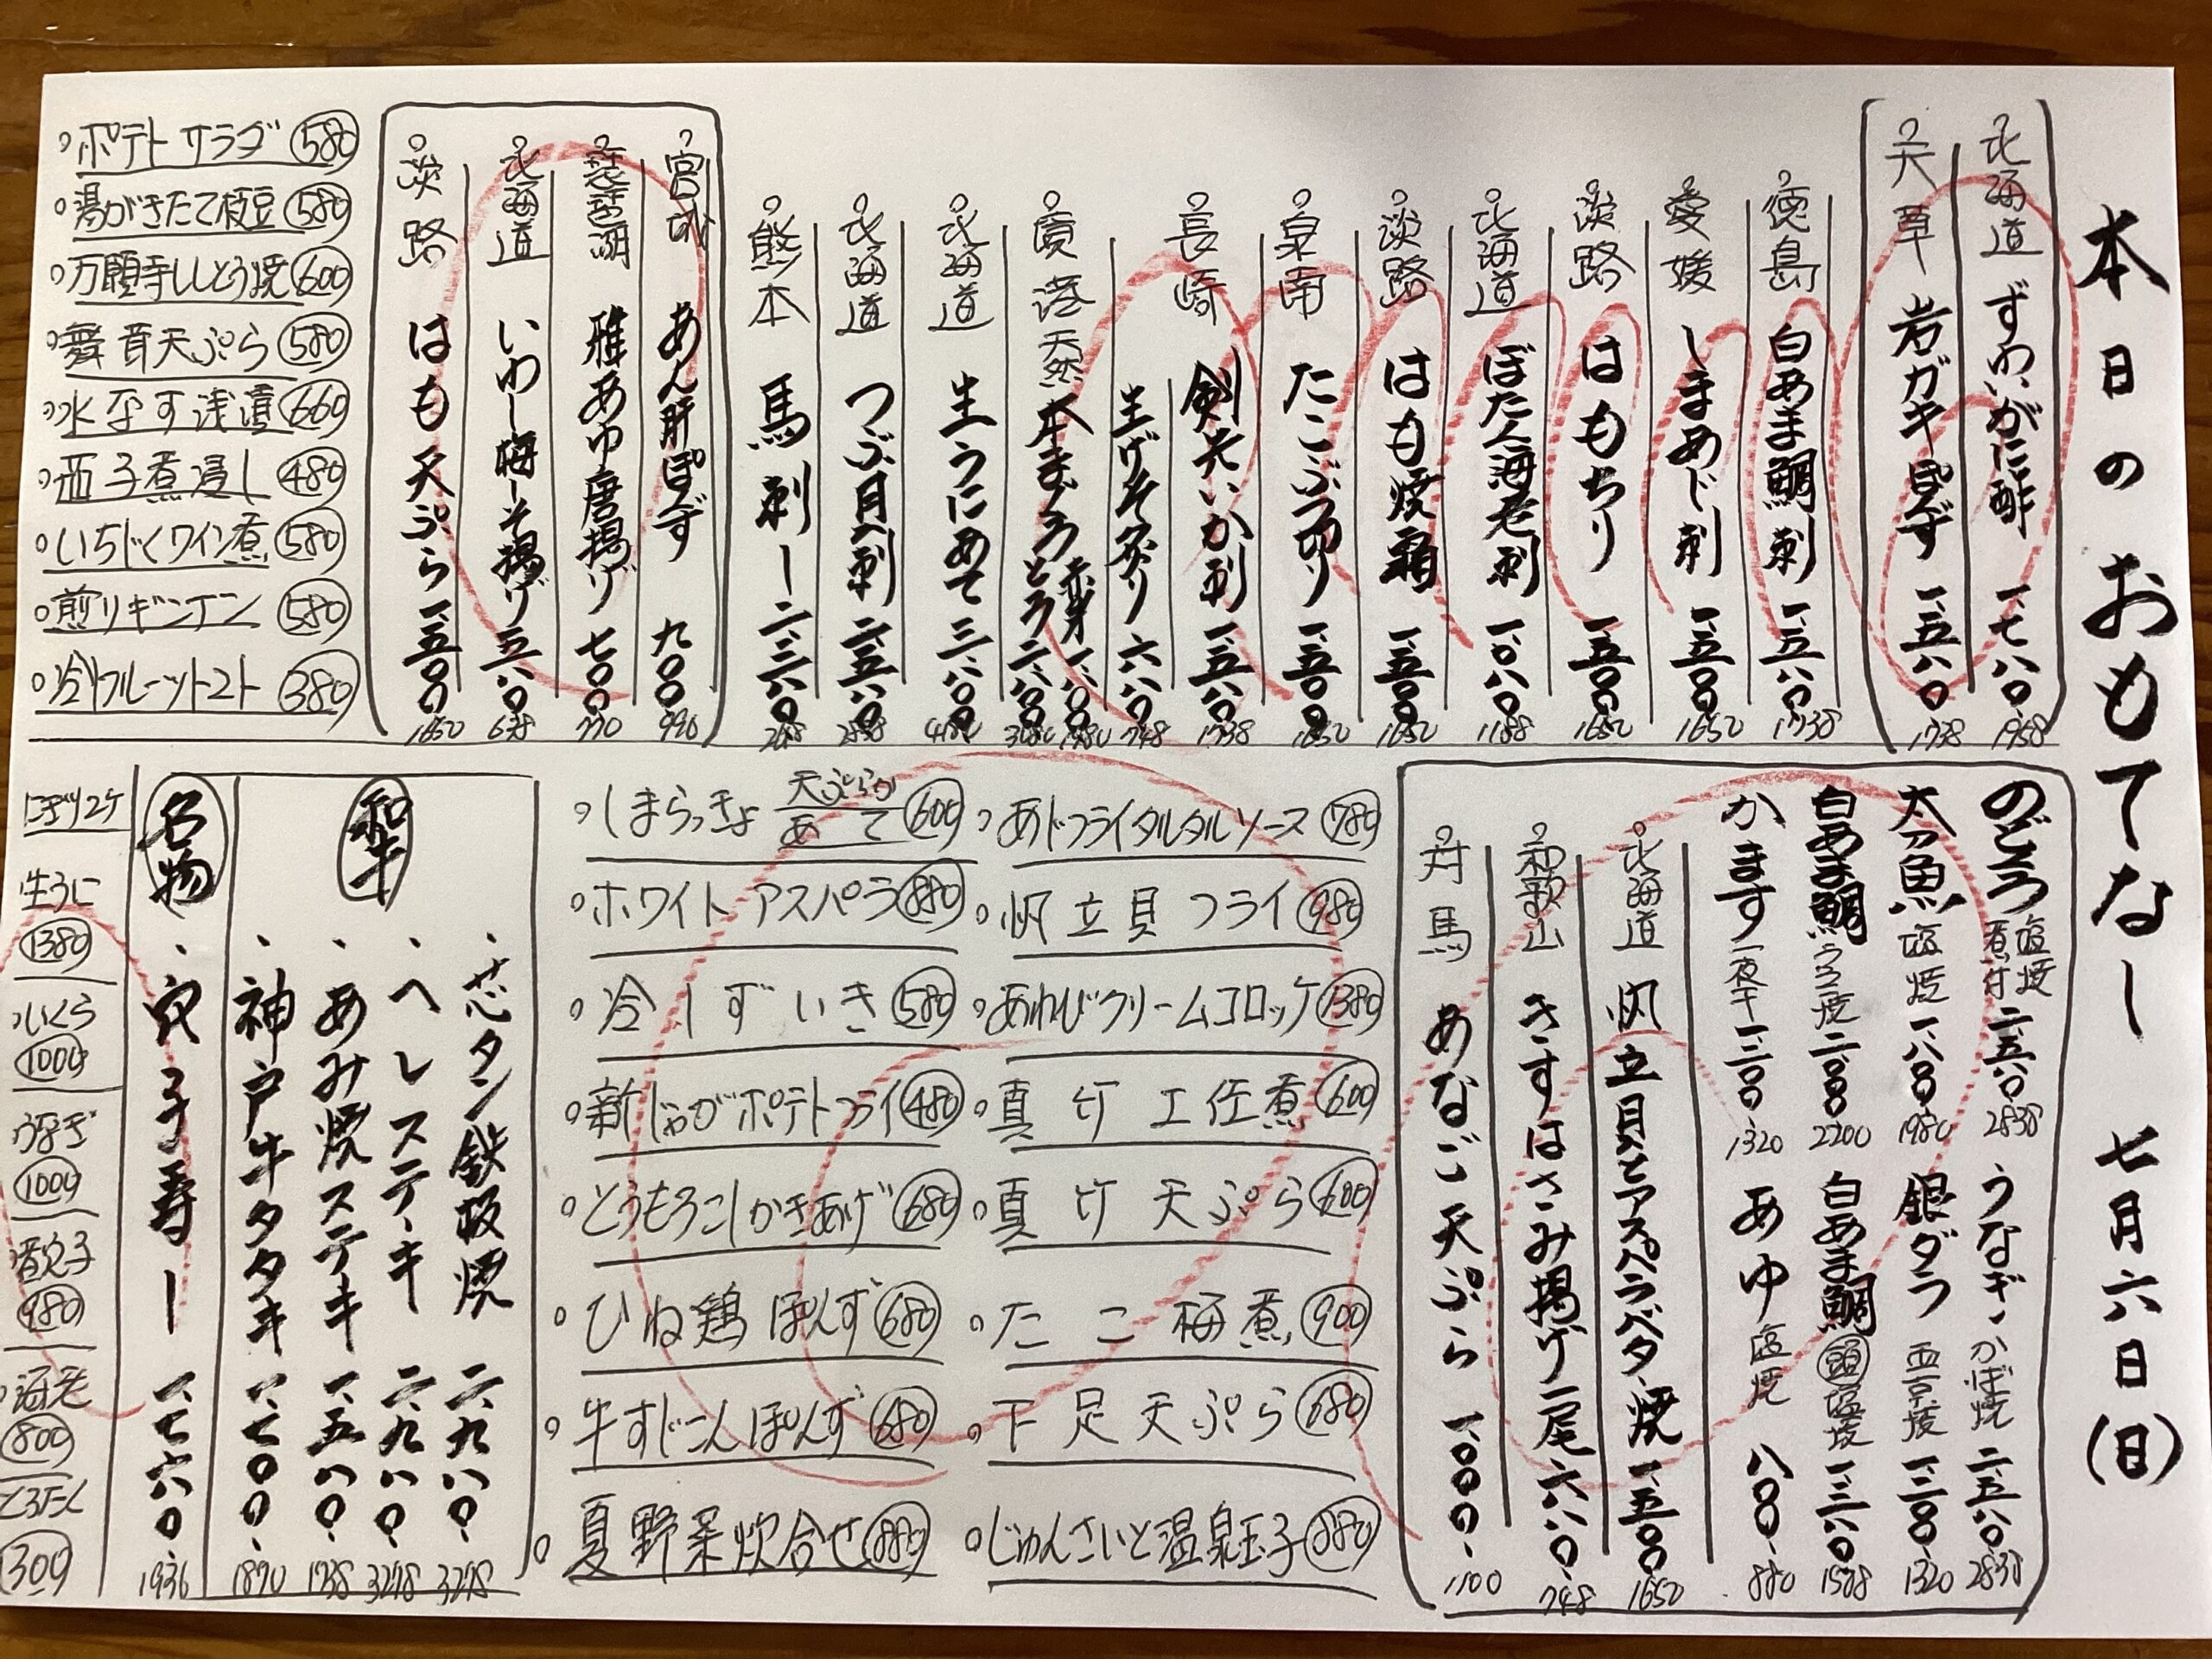 本日のおもてなし 七月六日(日)
北海道 ずわいがに酢 一、七八〇 1958
天草 岩ガキぽんず 一、五八〇 1738
徳島 白あま鯛刺 一、五八〇 1738
愛媛 しまあじ刺 一、五〇〇 1650
淡路 はもちり 一、五〇〇 1650
北海道 ぼたん海老刺 一、〇八〇 1188
淡路 はも焼霜 一、五〇〇 1650
泉南 たこぶつ切り 一、五〇〇 1650
長崎 剣先いか刺 一、五八〇 1738
生げそ造り 六八〇 748
境港 天然本まぐろ 赤身 一、八〇〇 1980
とろ 二、八〇〇 3080
北海道 生うにあて 三、八〇〇 4180
北海道 つぶ貝刺 二、五八〇 2838
熊本 馬刺し 二、三八〇
宮城 あん肝ぽんず 九〇〇 990
琵琶湖 稚あゆ唐揚げ 七〇〇 770
北海道 いわし梅しそ揚げ 五八〇 638
淡路 はも天ぷら 一、五〇〇 1650
ポテトサラダ 580
湯がきたて枝豆 580
万願寺ししとう焼 600
舞茸天ぷら 580
水なす浅漬 660
茄子煮浸し 480
いちじくワイン煮 580
煎りギンナン 580
冷しフルーツトマト 380
のどぐろ 塩焼 煮付 二、五八〇 2838
太刀魚 塩焼 一、八〇〇 1980
白あま鯛 うろこ焼 二、〇〇〇 2200
かます 一夜干 一、二〇〇 1320
うなぎ かば焼 二、五八〇 2838
銀ダラ 西京焼 一、二〇〇 1320
白あま鯛 頭 塩焼 一、三八〇 1518
あゆ 塩焼 八〇〇 880
北海道 帆立貝とアスパラバター焼 一、五〇〇 1650
和歌山 きすはさみ揚げ 二尾 六八〇 748
対馬 あなご天ぷら 一、〇〇〇 1100
あじフライタルタルソース 780
帆立貝フライ 980
あわびクリームコロッケ 1380
真竹土佐煮 600
真竹天ぷら 600
たこ梅煮 900
下足天ぷら 680
じゅんさいと温泉玉子 880
しまらっきょ 天ぷらか あて 600
ホワイトアスパラ 880
冷しずいき 580
新じゃがポテトフライ 480
とうもろこしかきあげ 680
ひね鶏ぽんず 680
牛すじこんぽんず 680
夏野菜炊合せ 880
和牛
芯タン鉄板焼 二、九八〇 3278
ヘレステーキ 二、九八〇 3278
あみ焼ステーキ 一、五八〇 1738
神戸牛タタキ 一、七〇〇 1870
名物
穴子寿し 一、七六〇 1936
にぎり2ケ
生うに 1380
いくら 1000
うなぎ 1000
海老 800
とろたく 1300